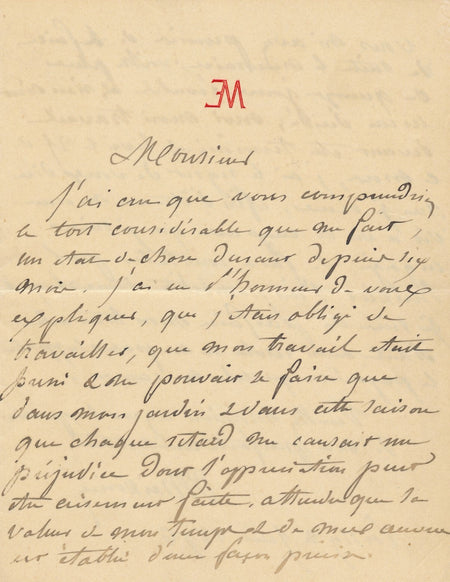 EM
Monsieur
J'ai cru que vous comprendriez
le tort considérable que me fait,
un état de chose durant depuis six
mois. J'ai eu l'honneur de vous
expliquer, que j'étais obligé de
travailler, que mon travail était
puni & ne pouvait se faire que
dans mon jardin & dans cette saison
que chaque retard me causait un
préjudice dont l'appréciation peut
être aisément faite, attendu que la
valeur de mon temps & de mes œuvres
est établie d'une façon précise.